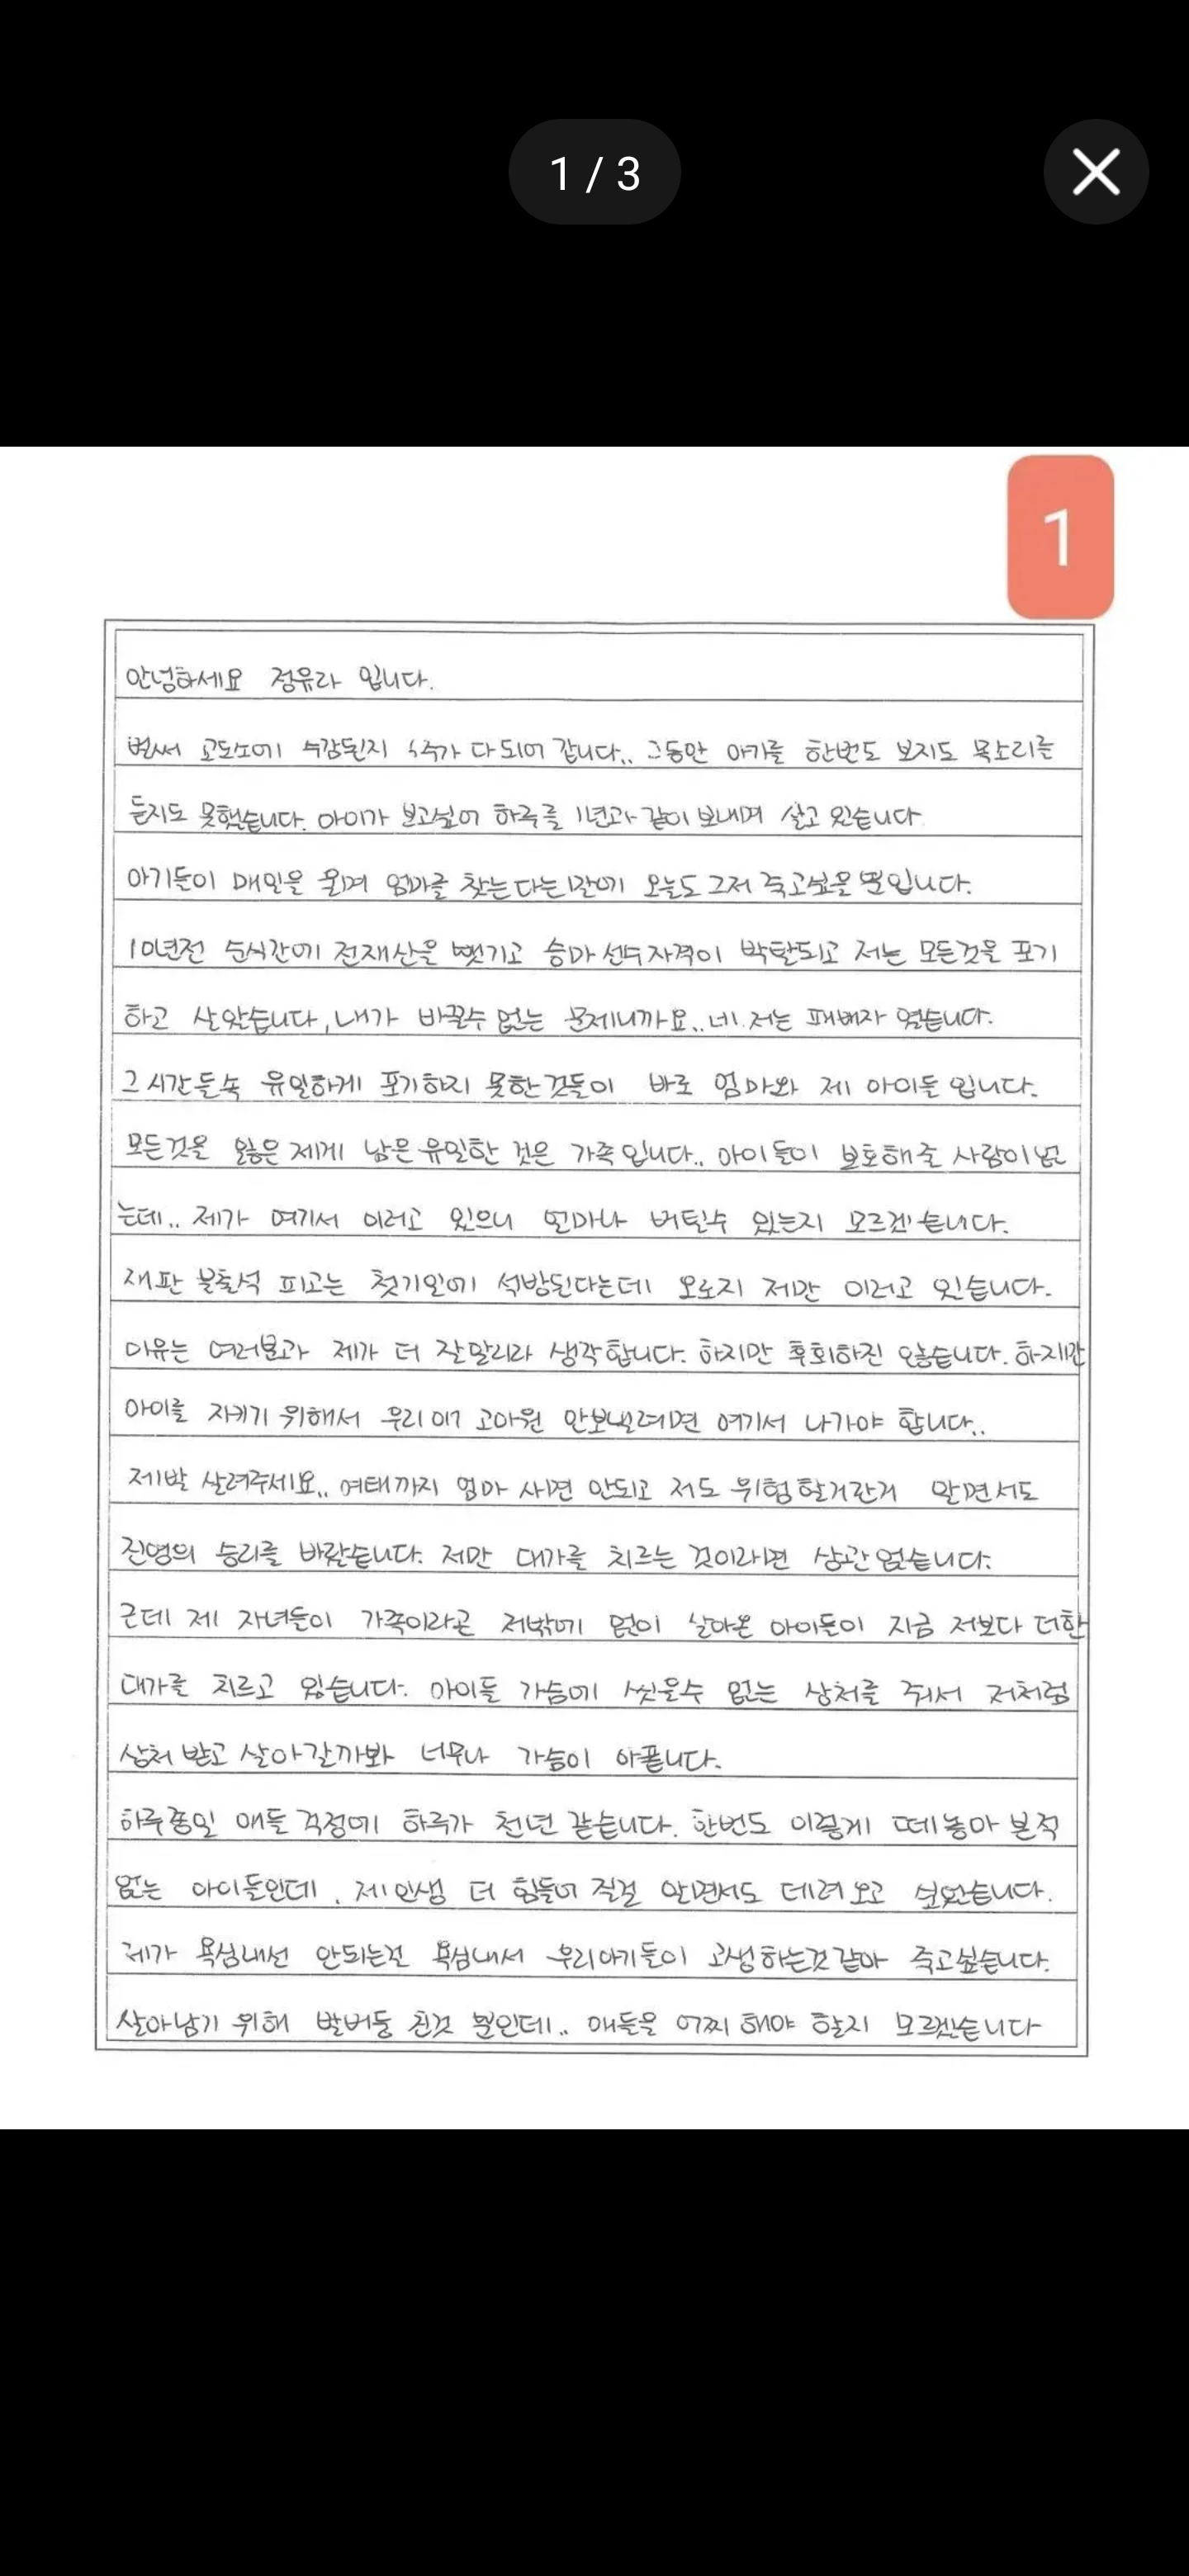 1 / 3
1
안녕하세요 정유라 입니다.
벌써 교도소에 수감된지 4주가 다 되어 갑니다.. 그동안 아기를 한번도 보지도 목소리를
듣지도 못했습니다. 아이가 보고싶어 하루를 1년과 같이 보내며 살고 있습니다
아기들이 매일을 울며 엄마를 찾는다는말에 오늘도 그저 죽고싶을 뿐입니다.
10년전 순식간에 전재산을 뺏기고 승마 선수자격이 박탈되고 저는 모든것을 포기
하고 살았습니다, 내가 바꿀수 없는 문제니까요.. 네. 저는 패배자 였습니다.
그 시간들속 유일하게 포기하지 못한 것들이 바로 엄마와 제 아이들 입니다.
모든것을 잃은 제게 남은 유일한 것은 가족 입니다.. 아이들이 보호해줄 사람이 없
는데.. 제가 여기서 이러고 있으니 얼마나 버틸수 있는지 모르겠습니다.
재판 불출석 피고는 첫기일에 석방된다는데 오로지 저만 이러고 있습니다.
이유는 여러분과 제가 더 잘알리라 생각합니다. 하지만 후회하진 않습니다. 하지만
아이를 지키기 위해서 우리 애 고아원 안보낼려면 여기서 나가야 합니다..
제발 살려주세요.. 여태까지 엄마 사면 안되고 저도 위험할거란거 알면서도
진영의 승리를 바랐습니다. 저만 대가를 치르는 것이라면 상관 없습니다.
근데 제 자녀들이 가족이라곤 저밖에 없이 살아온 아이들이 지금 저보다 더한
대가를 치르고 있습니다. 아이들 가슴에 씻을수 없는 상처를 줘서 저처럼
상처 받고 살아갈까봐 너무나 가슴이 아픕니다.
하루종일 애들 걱정에 하루가 천년 같습니다. 한번도 이렇게 떼놓아 본적
없는 아이들인데. 제 인생 더 힘들어 질걸 알면서도 데려 오고 싶었습니다.
제가 욕심내선 안되는걸 욕심내서 우리아기들이 고생하는것 같아 죽고싶습니다.
살아남기 위해 발버둥 친것 뿐인데.. 애들을 어찌 해야 할지 모르겠습니다